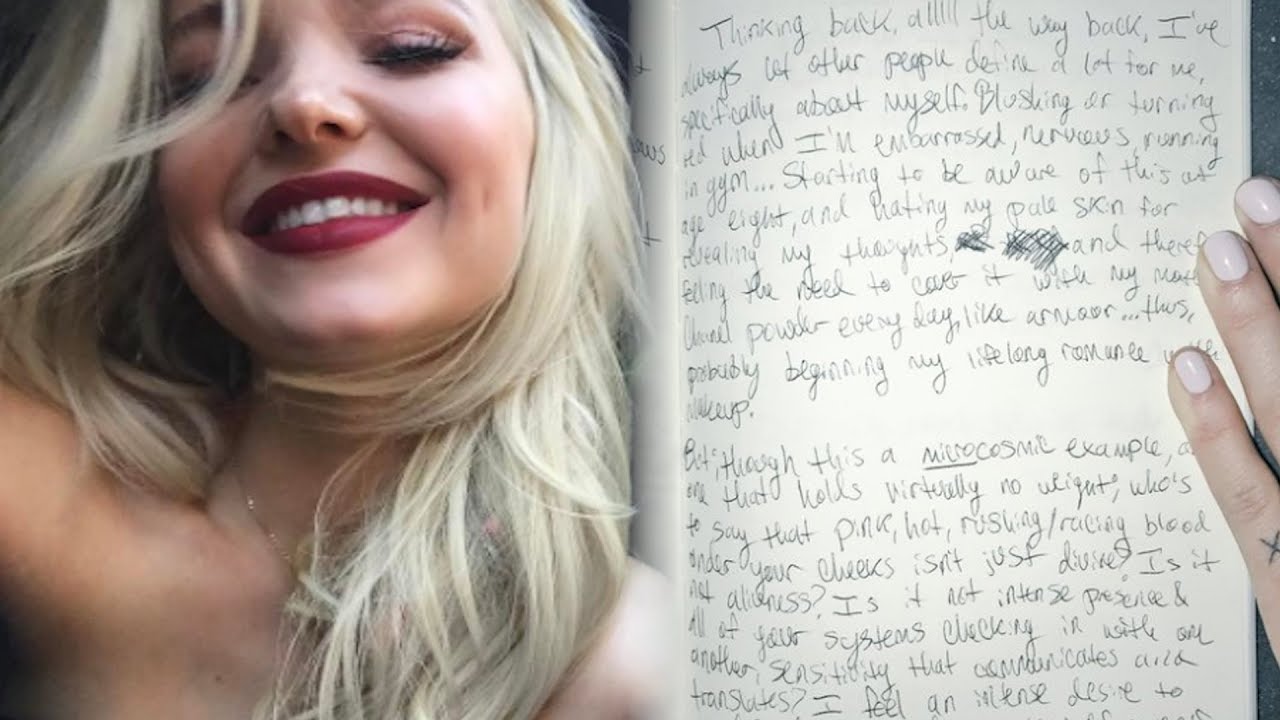 Thinking back, alllll the way back, I've
always let other people define a lot for me,
specifically about myself. Blushing or turning
red when I'm embarrassed, nervous, running
in gym... Starting to be aware of this at
age eight, and hating my pale skin for
revealing my thoughts, and
feeling the need to cover it with my
Chanel powder every day, like armoor...thus,
probably beginning my lifelong romance with
makeup.
But, though this a microcosmic example,
one that holds virtually no weight, who's
to say that pink, hot, rushing/racing blood
under your cheeks isn't just divine? Is it
not aliveness? Is it not intense presence &
all of your systems checking in with one
another, sensitivity that communicates and
translates? I feel an intense desire to